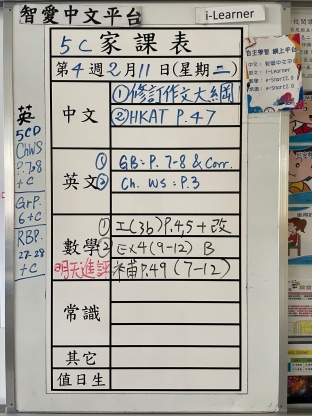 智愛中文平台
i-Learner
5C家課表
第4週2月11日(星期二)
中文
①修訂作文大綱
②HKAT P.47
英文
① GB: P. 7-8 & Corr.
② Ch. WS: P.3
數學
① 工(3b) P.4,5 + 改
② Ex4 (9-12) B
明天進評
補 P.49 (7-12)
常識
其它
值日生
英
5CD
Ch WS
P. 7-8
+ C
Gr P.
6 + C
RB P.
27-28
+ C
自主學習 網上平台
中文：智愛中文平台